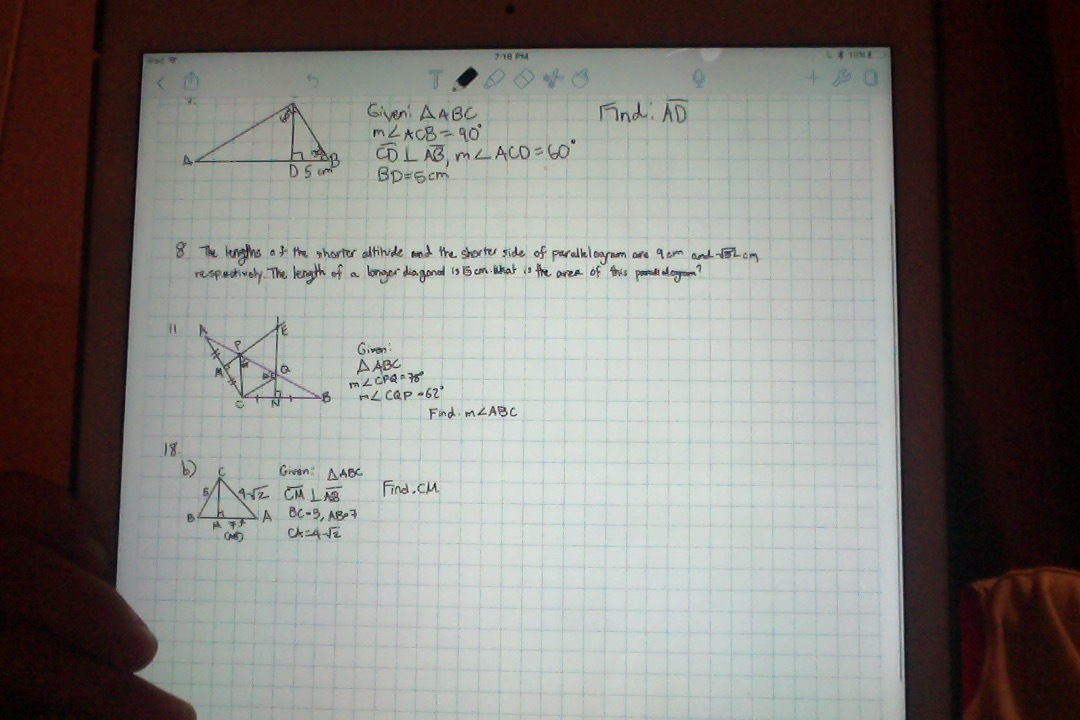 7:18 PM
Given: △ABC
Find: AD
m∠ACB = 90°
CD ⊥ AB, m∠ACD = 60°
BD = 5cm
A
B
D 5 cm
8 The lengths of the shorter altitude and the shorter side of parallelogram are 9 cm and √82 cm,
respectively. The length of a longer diagonal is 15 cm. What is the area of this parallelogram?
11
A
E
P
Q
M
C
N
B
Given:
△ABC
m∠CPQ = 78°
m∠CQP = 62°
Find: m∠ABC
18.
b)
C
5
4√2
B
M
7
A
(AB)
Given: △ABC
CM ⊥ AB
Find: CM
BC = 5, AB = 7
CA = 4√2